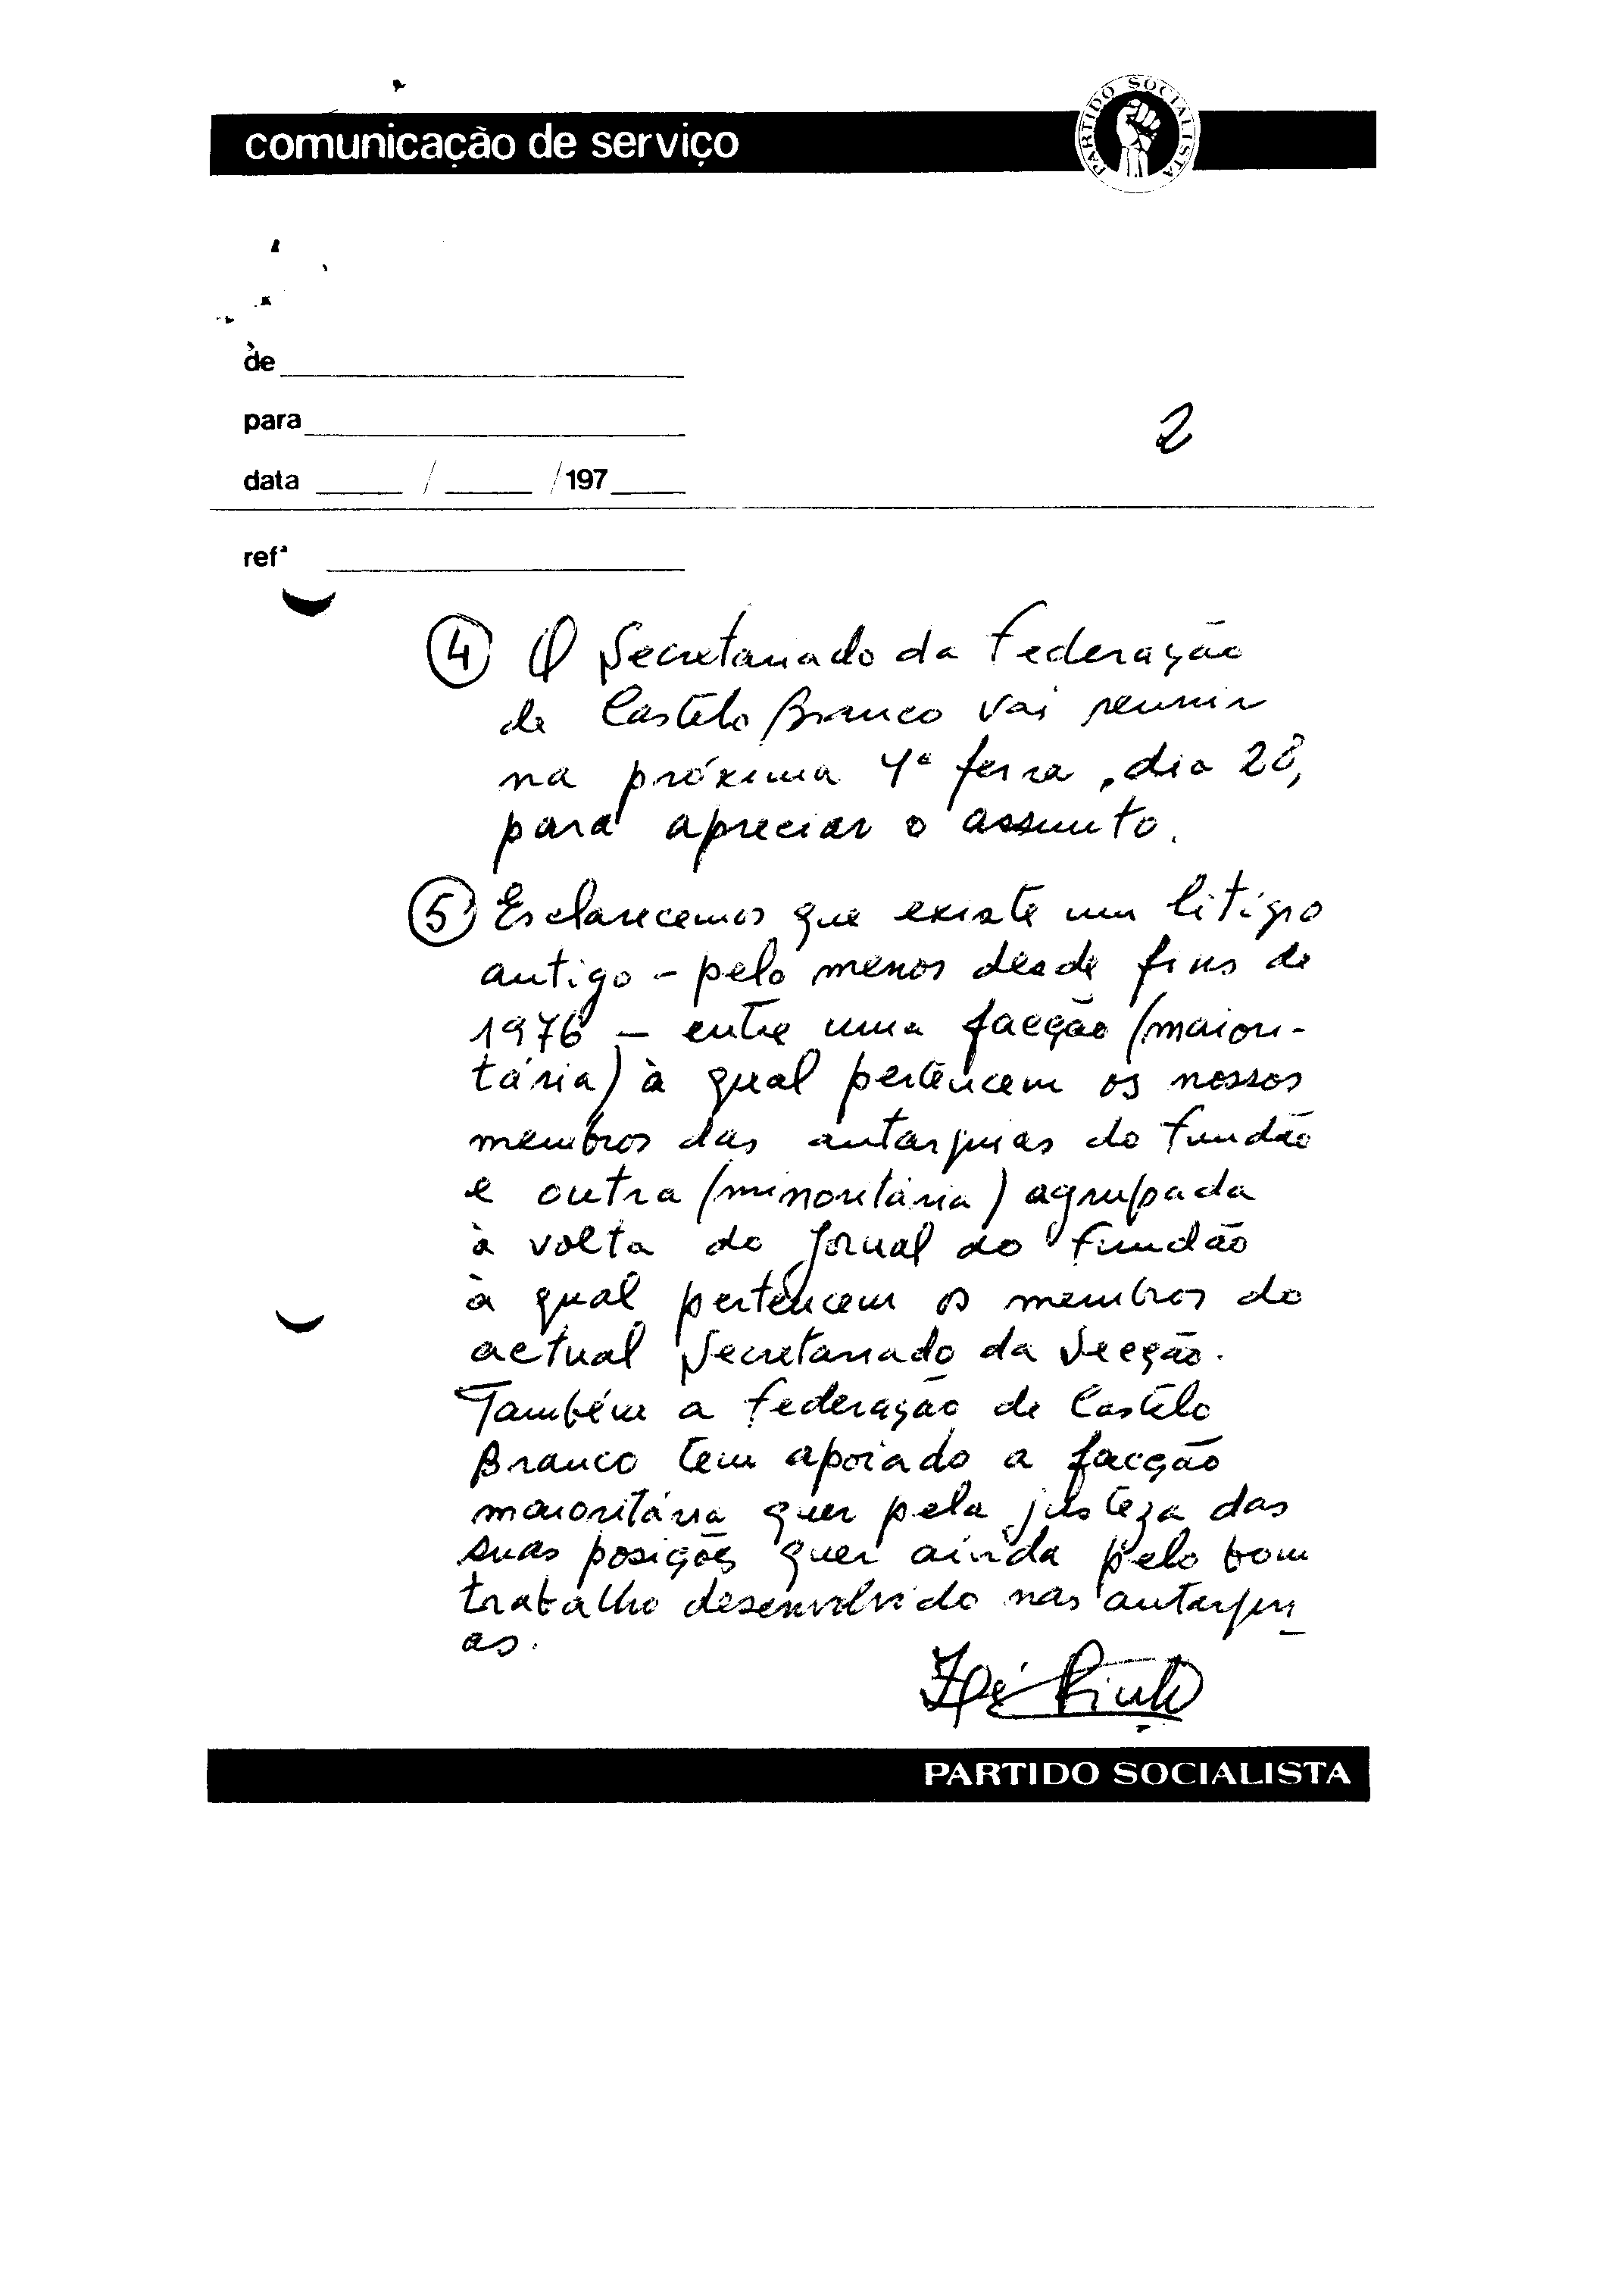 comunicação de serviço
PARTIDO SOCIALISTA
de
para
2
data / /197
refª
4 O Secretariado da Federação
de Castelo Branco vai reunir
na próxima 4ª feira, dia 28,
para apreciar o assunto.
5 Esclarecemos que existe um litígio
antigo - pelo menos desde fins de
1976 - entre uma facção (maiori-
tária) à qual pertencem os nossos
membros das autarquias do Fundão
e outra (minoritária) agrupada
à volta do Jornal do Fundão
à qual pertencem os membros do
actual Secretariado da Secção.
Também a Federação de Castelo
Branco tem apoiado a facção
maioritária quer pela justeza das
suas posições quer ainda pelo bom
trabalho desenvolvido nas autarqui
as.
Pinto
PARTIDO SOCIALISTA